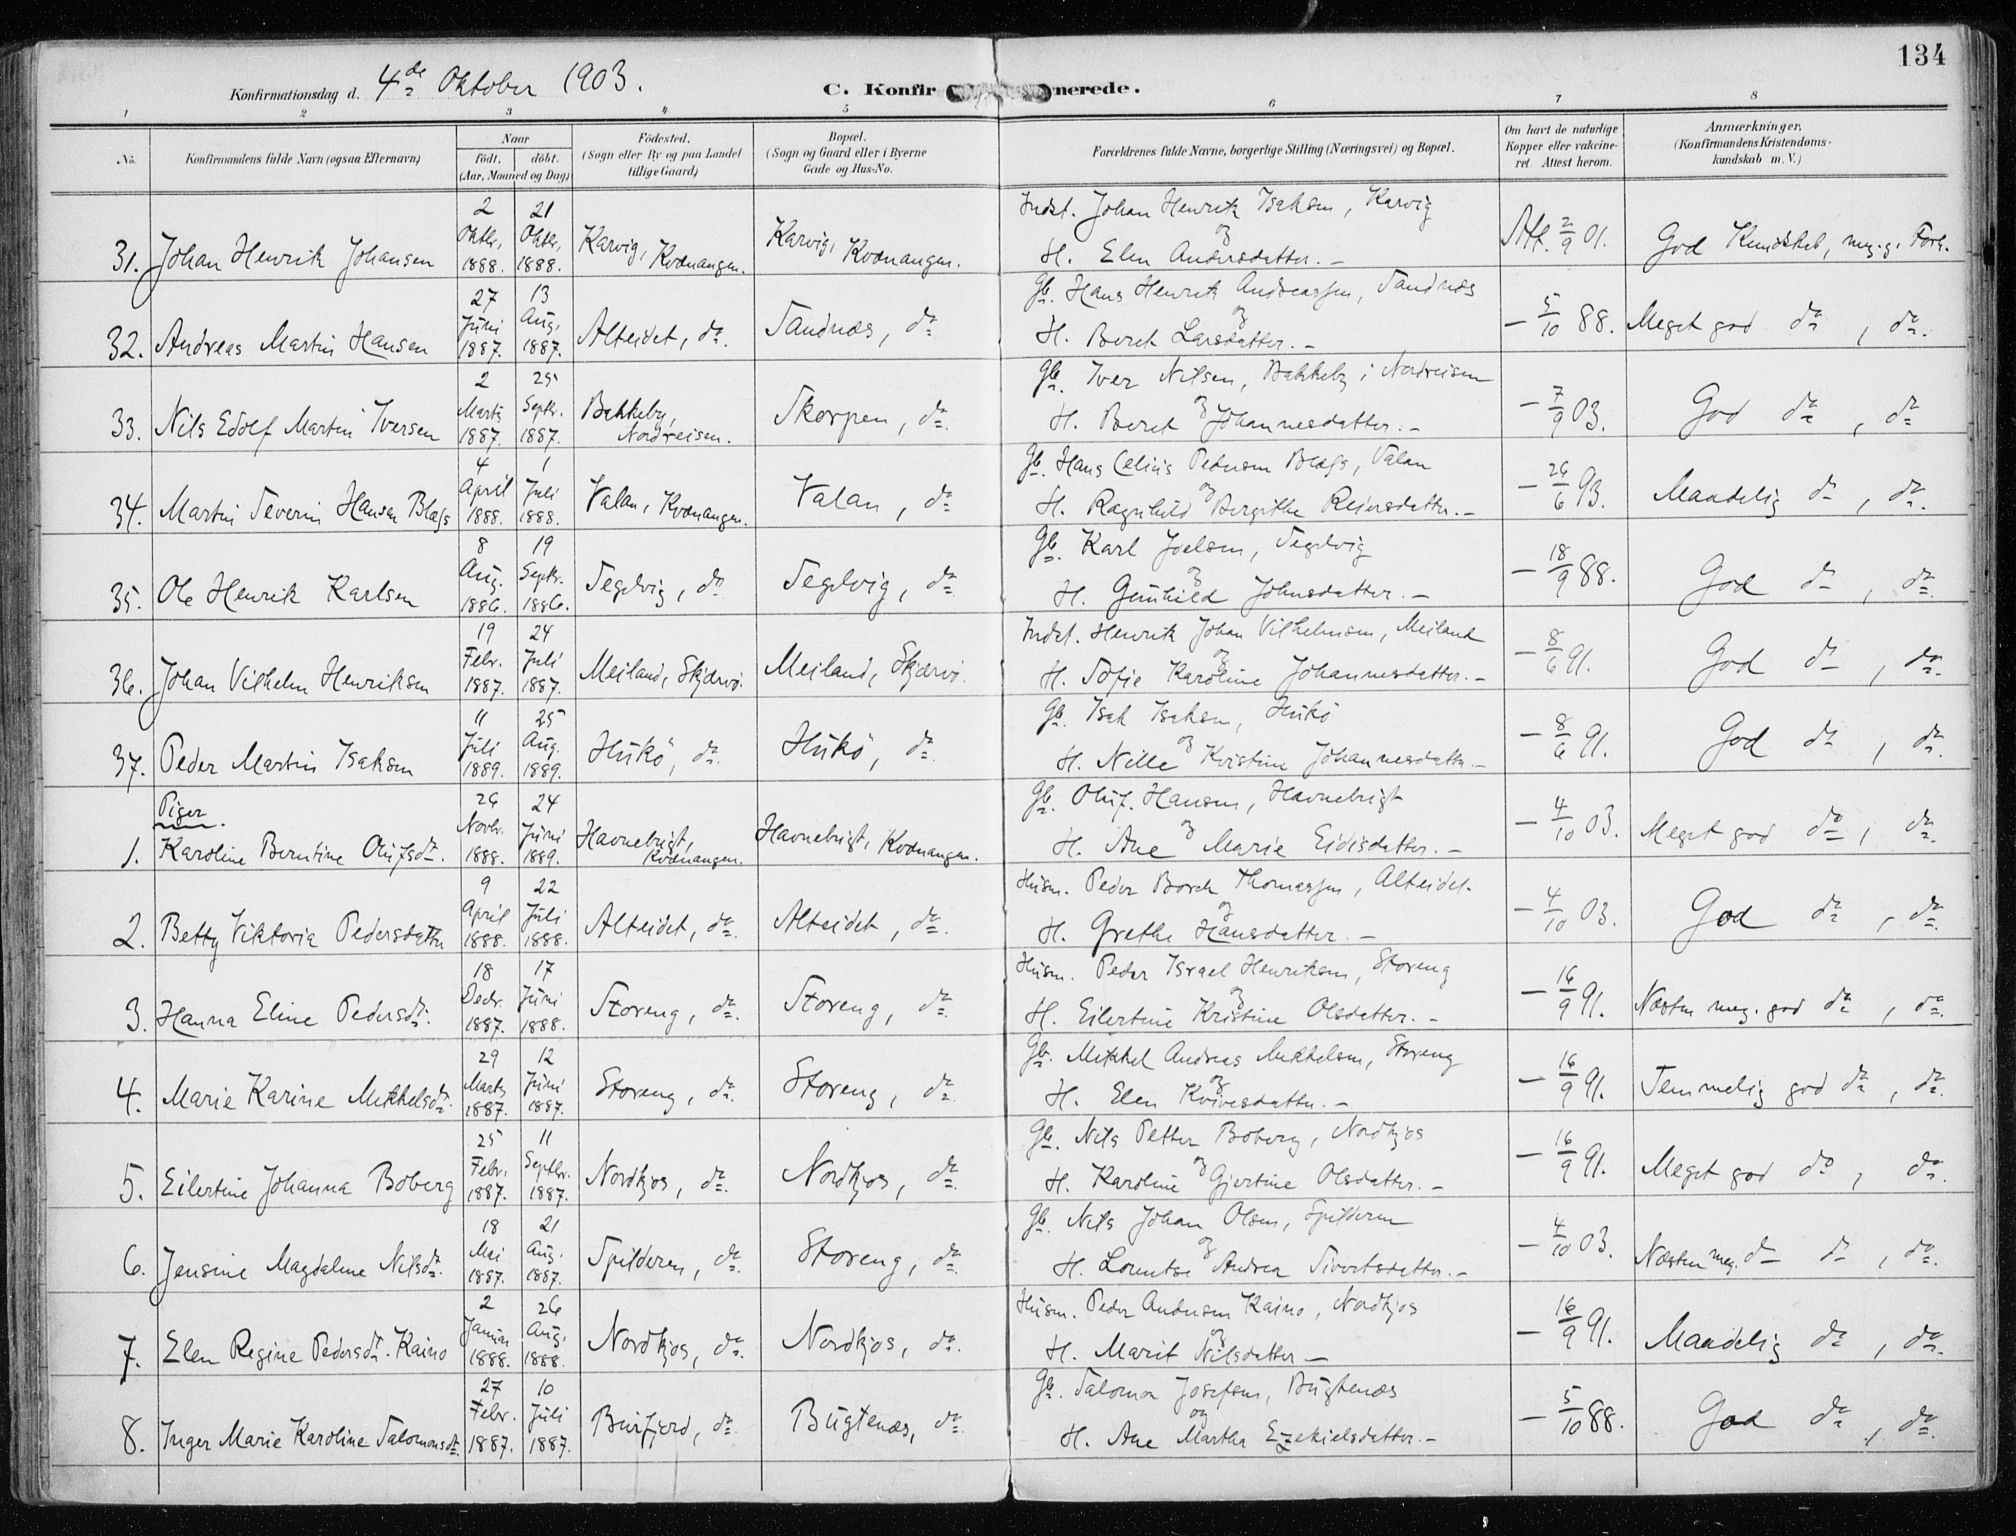 134
Konfirmationsdag d. 4de Oktober 1903.
C. Konfir merede.
1 2 3 4 5 6 7 8
No. Konfirmandens fulde Navn (ogsaa Efternavn) Naar födt. döbt. (Aar, Maaned og Dag) Födested. (Sogn eller By og paa Landet tillige Gaard) Bopæl. (Sogn og Gaard eller i Byerne Gade og Hus-No. Forældrenes fulde Navne, borgerlige Stilling (Næringsvei) og Bopæl. Om havt de naturlige Kopper eller vakcineret. Attest herom. Anmærkninger. (Konfirmandens Kristendomskundskab m. V.)
31. Johan Henrik Johansen 2 Oktbr. 1888. 21 Oktbr. 1888. Karvig, Kvænangen. Karvig, Kvænangen. Indst. Johan Henrik Isaksen, Karvig og H. Elen Andersdatter. – Att. 2/9 01. God Kundskab, meg. g. Forh.
32. Andreas Martin Hansen 27 Juni 1887. 13 Aug. 1887. Alteidet, do. Sandnæs, do. Gb. Hans Henrik Andreassen, Sandnæs og H. Beret Larsdatter. – – 5/10 88. Meget god do, do.
33. Nils Edolf Martin Iversen 2 Marts 1887. 25 Septr. 1887. Bakkeby, Nordreisen. Skorpen, do. Gb. Iver Nilsen, Bakkeby i Nordreisen og H. Beret Johannesdatter. – – 7/9 03. God do, do
34. Martin Severin Hansen Blæss 4 April 1888. 1 Juli 1888. Valan, Kvænangen. Valan, do. Gb. Hans Celius Pedersen Blæss, Valan og H. Ragnhild Bergithe Reiersdatter. – – 26/6 93. Maadelig do, do.
35. Ole Henrik Karlsen 8 Aug. 1886. 19 Septr. 1886. Segelvig, do Segelvig, do. Gb. Karl Joelsen, Segelvig og H. Gunhild Johnsdatter. – – 18/9 88. God do, do.
36. Johan Vilhelm Henriksen 19 Febr. 1887. 24 Juli 1887. Meiland, Skjærvö. Meiland, Skjærvö. Indst. Henrik Johan Vilhelmsen, Meiland og H. Sofie Karoline Johannesdatter. – – 8/6 91. God do, do.
37. Peder Martin Isaksen 11 Juli 1889. 25 Aug. 1889. Hukö, do. Hukö, do. Gb. Isak Isaksen, Hukö og H. Nille Kristine Johannesdatter – – 8/6 91. God do, do.
Piger
1. Karoline Berntine Olufsdt. 26 Novbr. 1888. 24 Juni 1889. Havnebugt, Kvænangen. Havnebugt, Kvænangen. Gb. Oluf Hansen, Havnebugt og H. Ane Marie Eidisdatter. – – 4/10 03. Meget god do, do.
2. Betty Viktoria Pedersdatter 9 April 1888. 22 Juli 1888. Alteidet, do. Alteidet, do. Husm. Peder Borch Thomassen, Alteidet. og H. Grethe Hansdatter. – – 4/10 03. God do, do.
3. Hanna Eline Pedersdt. 18 Decbr. 1887. 17 Juni 1888. Storeng, do. Storeng, do. Husm. Peder Israel Henriksen, Storeng og H. Eilertine Kristine Olsdatter. – – 16/9 91. Næsten meg. god do, do.
4. Marie Karine Mikkelsdt. 29 Marts 1887. 12 Juni 1887. Storeng, do. Storeng, do. Gb. Mikkel Andreas Mikkelsen, Storeng og H. Elen – – 16/9 91. Temmelig god do, do.
5. Eilertine Johanna Boberg 25 Febr. 1887. 11 Septbr. 1887. Nordkjos, do. Nordkjos, do. Gb. Nils Petter Boberg, Nordkjos og H. Karoline Gjertine Olsdatter. – – 16/9 91. Meget god do, do.
6. Jensine Magdalene Nilsdt. 18 Mai 1887. 21 Aug. 1887. Spilderen, do. Storeng, do. Gb. Nils Johan Olsen, Spilderen og H. Lorentse Andrea Sivertsdatter. – – 4/10 03. Næsten meg. do do, do.
7. Elen Regine Pedersdt. Kaino 2 Januar 1888. 26 Aug. 1888. Nordkjos, do. Nordkjos, do. Husm. Peder Andersen Kaino, Nordkjos og H. Marit Nilsdatter – – 16/9 91. Maadelig do, do.
8. Inger Marie Karoline Salomonsdt. 27 Febr. 1887. 10 Juli 1887. Burfjord, do. Bugtenæs, do. Gb. Salomon Josefsen, Bugtenæs og H. Ane Martha Ezekielsdatter. – – 5/10 88. God do, do.